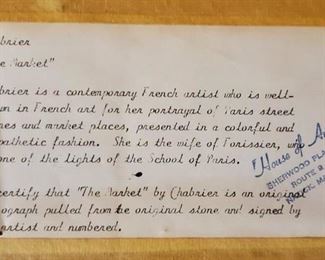 brier
e Market"
brier is a contemporary French artist who is well-
wn in French art for her portrayal of Paris street
nes and market places, presented in a colorful and
pathetic fashion. She is the wife of Forissier, who
one of the lights of the School of Paris.
ertify that "The Market" by Chabrier is an original
ograph pulled from the original stone and signed by
artist and numbered.
House of A
SHERWOOD PLA
ROUTE 9